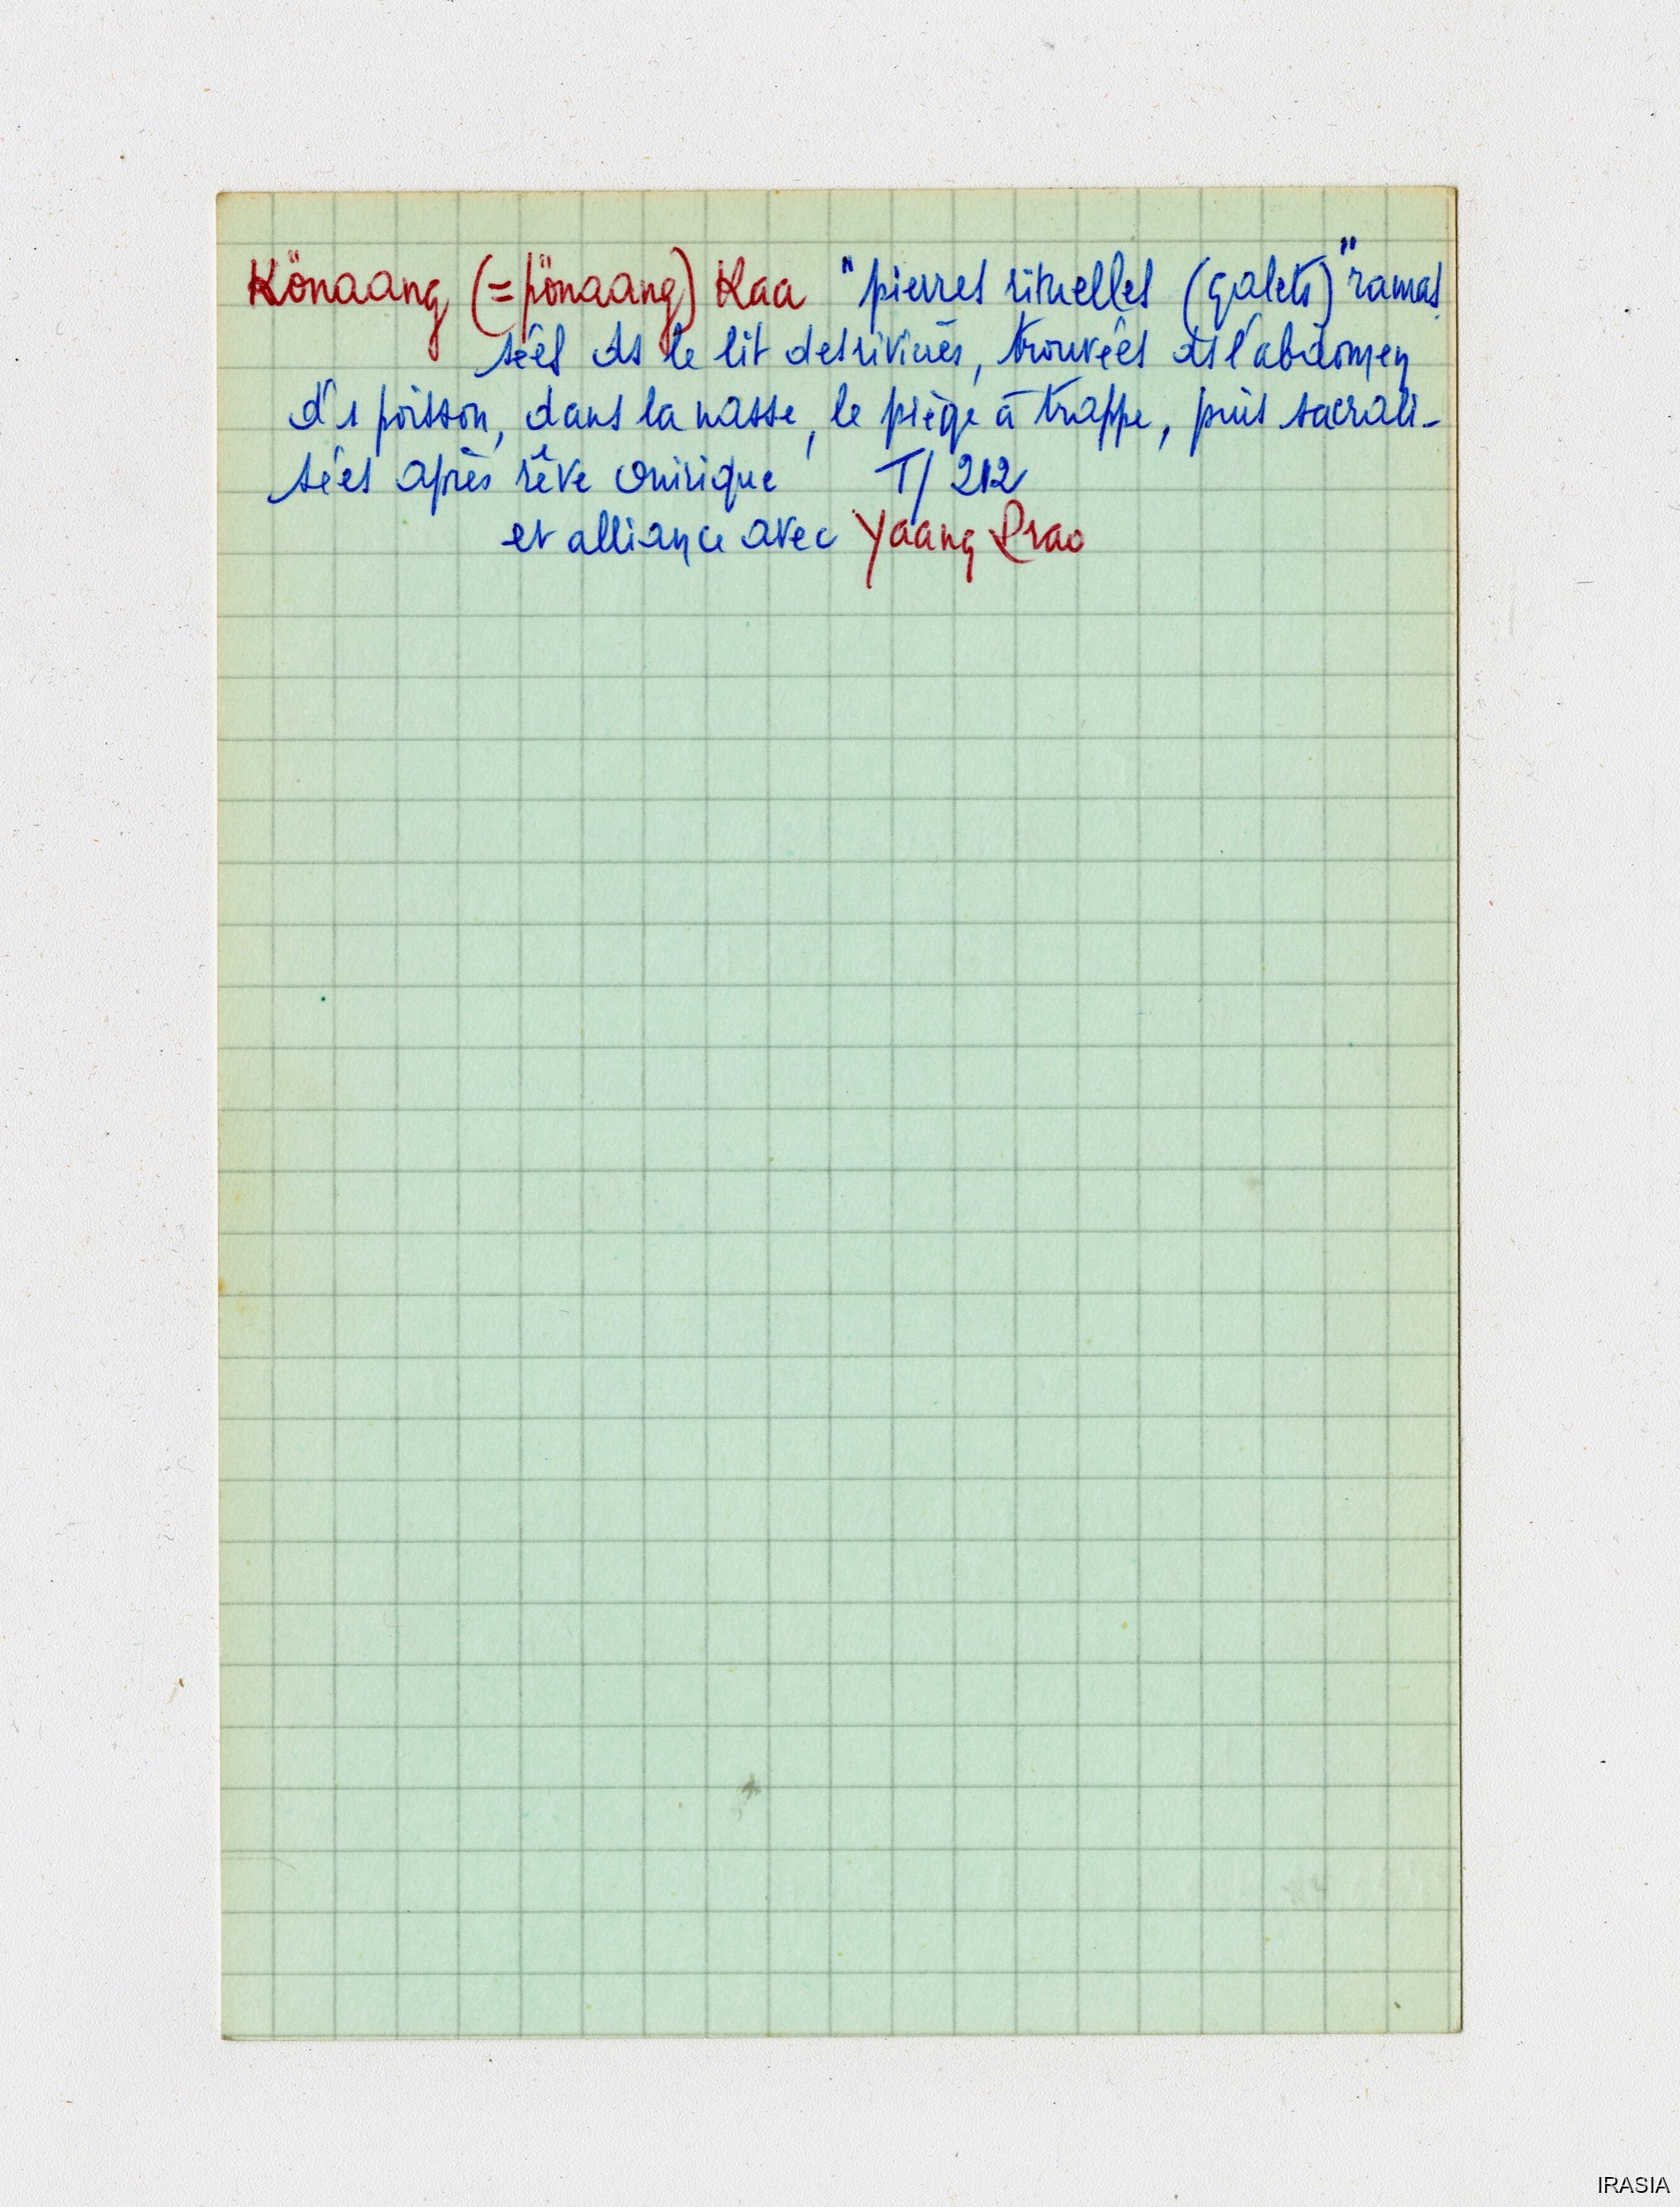 Könaang (=pönaang) Kaa "pierres rituelles (galets)" ramas
sées ds le lit des rivières, trouvées ds l'abdomen
d'1 poisson, dans la nasse, le piège à trappe, puis sacrali-
sées après rêve onirique T/ 212
et alliance avec Yaang Prao
IRASIA